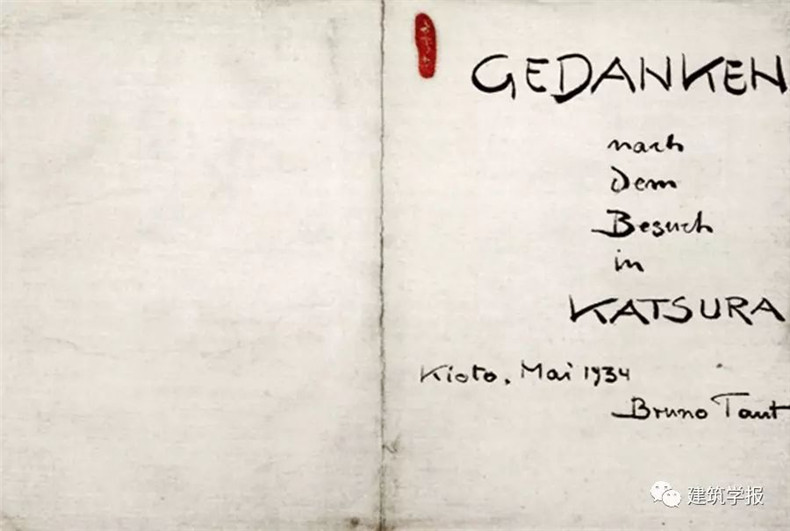 GEDANKEN
nach
dem
Besuch
in
KATSURA
Kioto, Mai 1934
Bruno Taut
建筑学报